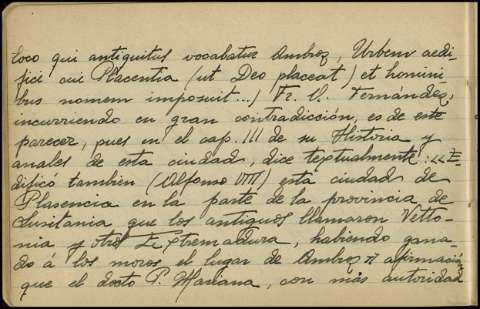 loco qui antiquitus vocabatur Ambroz, Urbem aedi-
fici cui Placentia (ut Deo placeat) et homini
bus nomem imposuit...) Fr. A. Fernández,
incurriendo en gran contradicción, es de este
parecer, pues en el cap. III de su Historia y
anales de esta ciudad, dice textualmente: «E-
dificó tambien (Alfonso VIII) esta ciudad de
Plasencia en la parte de la provincia de
Lusitania que los antiguos llamaron Vetto-
nia y otros Extremadura, habiendo gana-
do á los moros el lugar de Ambroz» afirmación
que el docto P. Mariana, con más autoridad